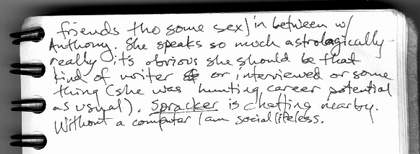 friends tho some sex/in between w/
Anthony. She speaks so much astrologically
really it's obvious she should be that
kind of writer or interviewed or some
thing (she was hunting career potential
as usual). Spracker is chatting nearby.
Without a computer I am social lifeless.